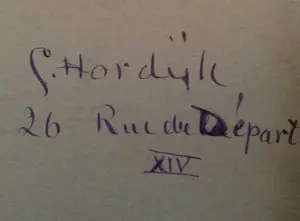 G. Hordÿk,
26 Rue du Départ
XIV